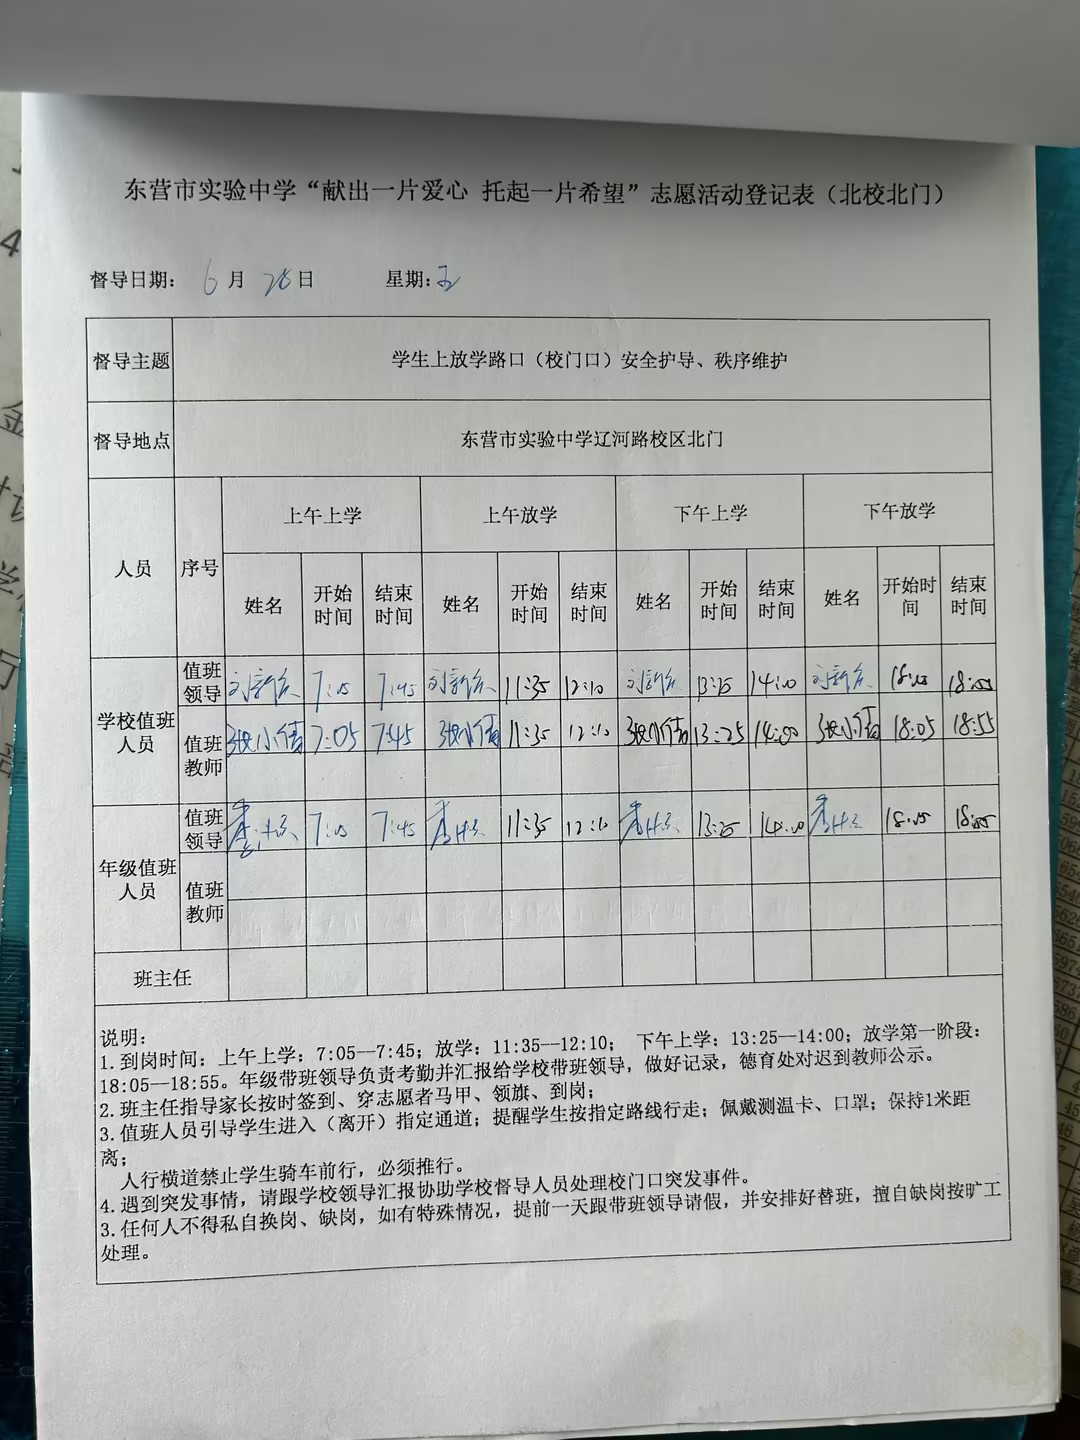 东营市实验中学“献出一片爱心 托起一片希望”志愿活动登记表（北校北门）
督导日期： 6 月 28 日 星期：五
督导主题 学生上放学路口（校门口）安全护导、秩序维护
督导地点 东营市实验中学辽河路校区北门
人员 序号 上午上学 上午放学 下午上学 下午放学
姓名 开始时间 结束时间 姓名 开始时间 结束时间 姓名 开始时间 结束时间 姓名 开始时间 结束时间
学校值班人员 值班领导 7:05 7:45 11:35 12:10 13:25 14:00 18:05 18:55
值班教师 张小倩 7:05 7:45 张小倩 11:35 12:10 张小倩 13:25 14:00 张小倩 18:05 18:55
年级值班人员 值班领导 7:05 7:45 11:35 12:10 13:25 14:00 18:05 18:55
值班教师
班主任
说明：
1.到岗时间：上午上学：7:05--7:45；放学：11:35--12:10； 下午上学：13:25--14:00；放学第一阶段：
18:05--18:55。年级带班领导负责考勤并汇报给学校带班领导，做好记录，德育处对迟到教师公示。
2.班主任指导家长按时签到、穿志愿者马甲、领旗、到岗；
3.值班人员引导学生进入（离开）指定通道；提醒学生按指定路线行走；佩戴测温卡、口罩；保持1米距
离；
人行横道禁止学生骑车前行，必须推行。
4.遇到突发事情，请跟学校领导汇报协助学校督导人员处理校门口突发事件。
3.任何人不得私自换岗、缺岗，如有特殊情况，提前一天跟带班领导请假，并安排好替班，擅自缺岗按旷工
处理。